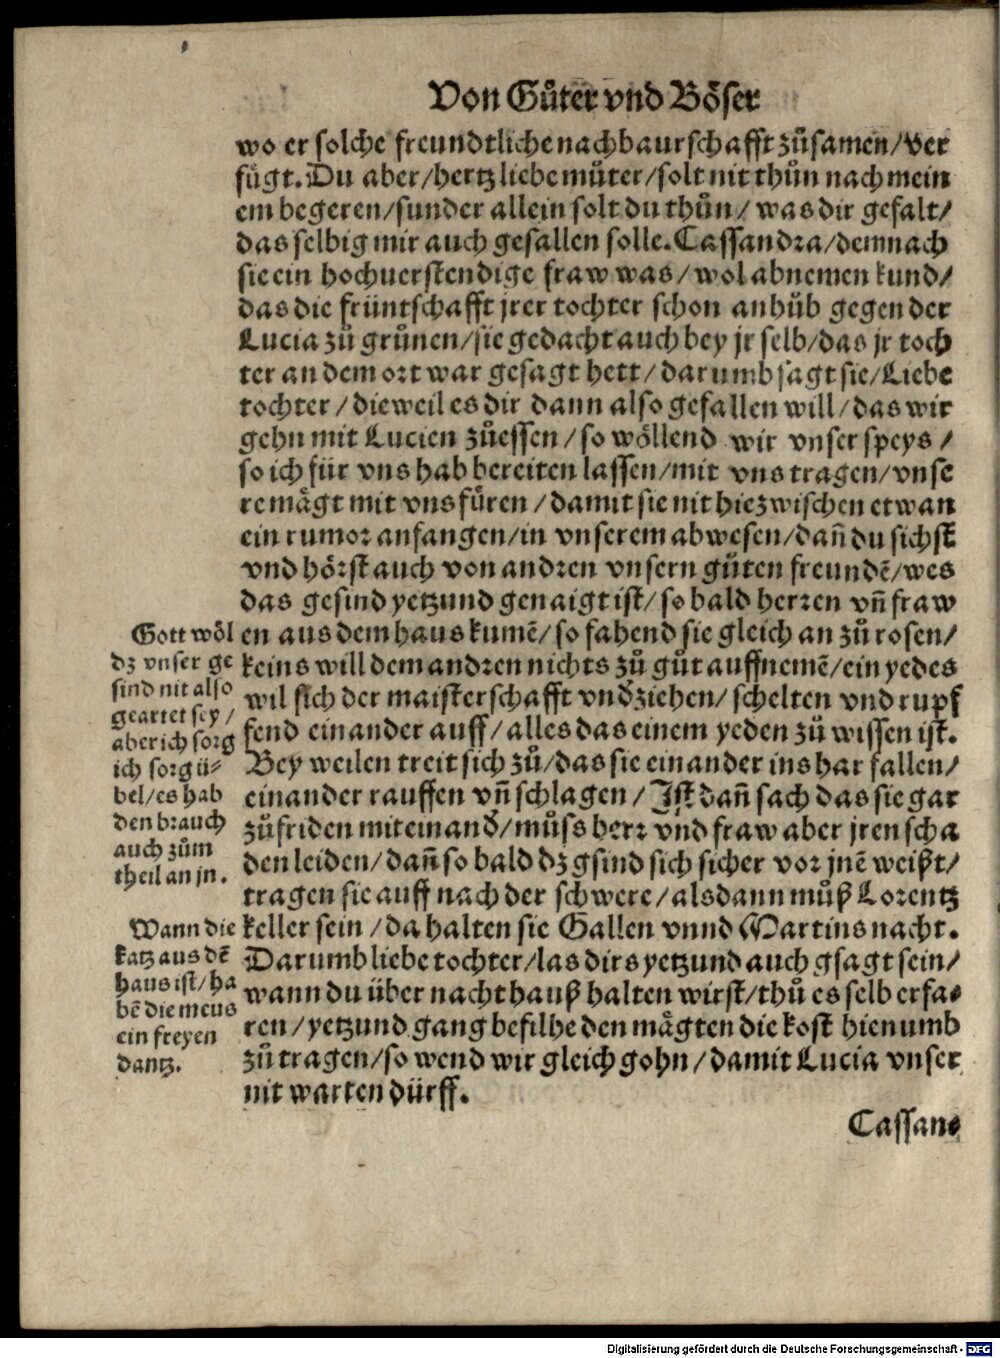 Von Gůter vnd Böser
wo er solche freundtliche nachbaurschafft zůsamen/ver
fügt. Du aber/hertzliebe můter/solt nit thůn nach mein
em begeren/sunder allein solt du thůn/was dir gefalt/
das selbig mir auch gefallen solle. Cassandra/demnach
sie ein hochuerstendige fraw was/wol abnemen kund/
das die früntschafft jrer tochter schon anhůb gegen der
Lucia zů grůnen/sie gedacht auch bey jr selb/das jr toch
ter an dem ort war gesagt hett/darumb sagt sie/Liebe
tochter/dieweil es dir dann also gefallen will/das wir
gehn mit Lucien zůessen/so wöllend wir vnser speys/
so ich für vns hab bereiten lassen/mit vns tragen/vnse
re mägt mit vns füren/damit sie nit hiezwischen etwan
ein rumor anfangen/in vnserem abwesen/dañ du sichst
vnd hörst auch von andren vnsern gůten freundẽ/wes
das gesind yetzund genaigt ist/so bald herren vñ fraw
en aus dem haus kumẽ/so fahend sie gleich an zů rosen/
keins will dem andren nichts zů gůt auffnemẽ/ein yedes
wil sich der maisterschafft vndziehen/schelten vnd rupf
fend einander auff/alles das einem yeden zů wissen ist.
Bey weilen treit sich zů/das sie einander ins har fallen/
einander rauffen vñ schlagen/Ist dañ sach das sie gar
zůfriden miteinand/můss herr vnd fraw aber jren scha
den leiden/dañ so bald dz gsind sich sicher vor jnẽ weißt/
tragen sie auff nach der schwere/alsdann můß Lorentz
keller sein/da halten sie Gallen vnnd Martins nacht.
Darumb liebe tochter/las dirs yetzund auch gsagt sein/
wann du über nacht hauß halten wirst/thů es selb erfa-
ren/yetzund gang befilhe den mägten die kost hienumb
zů tragen/so wend wir gleich gohn/damit Lucia vnser
nit warten dürff.
Gott wöl
dz vnser ge
sind nit also
geartet sey/
aber ich sorg
ich sorg ü-
bel/es hab
den brauch
auch zům
theil an jn.
Wann die
katz aus dẽ
haus ist/ha
bẽ die meus
ein freyen
dantz.
Cassan-
Digitalisierung gefördert durch die Deutsche Forschungsgemeinschaft - DFG